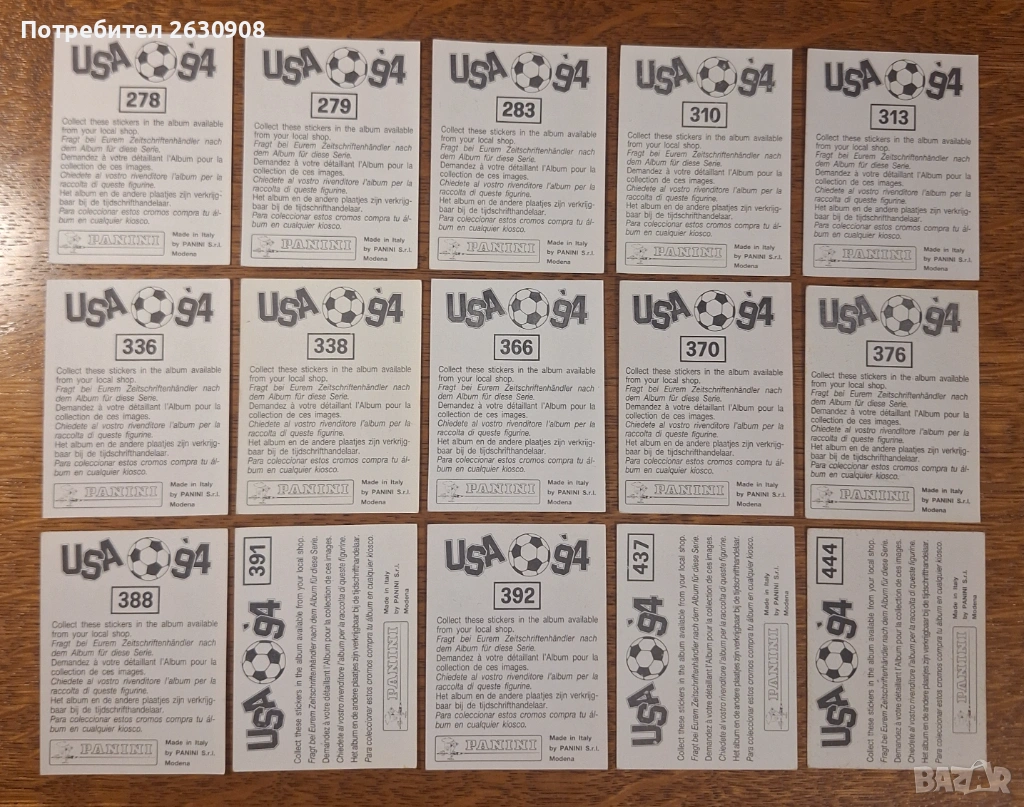 Потребител 2630908
USA '94
278
Collect these stickers in the album available
from your local shop.
Fragt bei Eurem Zeitschriftenhändler nach
dem Album für diese Serie.
Demandez à votre détaillant l'Album pour la
collection de ces images.
Chiedete al vostro rivenditore l'album per la
raccolta di queste figurine.
Het album en de andere plaatjes zijn verkrijg-
baar bij de tijdschrifthandelaar.
Para coleccionar estos cromos compra tu ál-
bum en cualquier kiosco.
PANINI
Made in Italy
by PANINI S.r.l.
Modena
USA '94
279
Collect these stickers in the album available
from your local shop.
Fragt bei Eurem Zeitschriftenhändler nach
dem Album für diese Serie.
Demandez à votre détaillant l'Album pour la
collection de ces images.
Chiedete al vostro rivenditore l'album per la
raccolta di queste figurine.
Het album en de andere plaatjes zijn verkrijg-
baar bij de tijdschrifthandelaar.
Para coleccionar estos cromos compra tu ál-
bum en cualquier kiosco.
PANINI
Made in Italy
by PANINI S.r.l.
Modena
USA '94
283
Collect these stickers in the album available
from your local shop.
Fragt bei Eurem Zeitschriftenhändler nach
dem Album für diese Serie.
Demandez à votre détaillant l'Album pour la
collection de ces images.
Chiedete al vostro rivenditore l'album per la
raccolta di queste figurine.
Het album en de andere plaatjes zijn verkrijg-
baar bij de tijdschrifthandelaar.
Para coleccionar estos cromos compra tu ál-
bum en cualquier kiosco.
PANINI
Made in Italy
by PANINI S.r.l.
Modena
USA '94
310
Collect these stickers in the album available
from your local shop.
Fragt bei Eurem Zeitschriftenhändler nach
dem Album für diese Serie.
Demandez à votre détaillant l'Album pour la
collection de ces images.
Chiedete al vostro rivenditore l'album per la
raccolta di queste figurine.
Het album en de andere plaatjes zijn verkrijg-
baar bij de tijdschrifthandelaar.
Para coleccionar estos cromos compra tu ál-
bum en cualquier kiosco.
PANINI
Made in Italy
by PANINI S.r.l.
Modena
USA '94
313
Collect these stickers in the album available
from your local shop.
Fragt bei Eurem Zeitschriftenhändler nach
dem Album für diese Serie.
Demandez à votre détaillant l'Album pour la
collection de ces images.
Chiedete al vostro rivenditore l'album per la
raccolta di queste figurine.
Het album en de andere plaatjes zijn verkrijg-
baar bij de tijdschrifthandelaar.
Para coleccionar estos cromos compra tu ál-
bum en cualquier kiosco.
PANINI
Made in Italy
by PANINI S.r.l.
Modena
USA '94
336
Collect these stickers in the album available
from your local shop.
Fragt bei Eurem Zeitschriftenhändler nach
dem Album für diese Serie.
Demandez à votre détaillant l'Album pour la
collection de ces images.
Chiedete al vostro rivenditore l'album per la
raccolta di queste figurine.
Het album en de andere plaatjes zijn verkrijg-
baar bij de tijdschrifthandelaar.
Para coleccionar estos cromos compra tu ál-
bum en cualquier kiosco.
PANINI
Made in Italy
by PANINI S.r.l.
Modena
USA '94
338
Collect these stickers in the album available
from your local shop.
Fragt bei Eurem Zeitschriftenhändler nach
dem Album für diese Serie.
Demandez à votre détaillant l'Album pour la
collection de ces images.
Chiedete al vostro rivenditore l'album per la
raccolta di queste figurine.
Het album en de andere plaatjes zijn verkrijg-
baar bij de tijdschrifthandelaar.
Para coleccionar estos cromos compra tu ál-
bum en cualquier kiosco.
PANINI
Made in Italy
by PANINI S.r.l.
Modena
USA '94
366
Collect these stickers in the album available
from your local shop.
Fragt bei Eurem Zeitschriftenhändler nach
dem Album für diese Serie.
Demandez à votre détaillant l'Album pour la
collection de ces images.
Chiedete al vostro rivenditore l'album per la
raccolta di queste figurine.
Het album en de andere plaatjes zijn verkrijg-
baar bij de tijdschrifthandelaar.
Para coleccionar estos cromos compra tu ál-
bum en cualquier kiosco.
PANINI
Made in Italy
by PANINI S.r.l.
Modena
USA '94
370
Collect these stickers in the album available
from your local shop.
Fragt bei Eurem Zeitschriftenhändler nach
dem Album für diese Serie.
Demandez à votre détaillant l'Album pour la
collection de ces images.
Chiedete al vostro rivenditore l'album per la
raccolta di queste figurine.
Het album en de andere plaatjes zijn verkrijg-
baar bij de tijdschrifthandelaar.
Para coleccionar estos cromos compra tu ál-
bum en cualquier kiosco.
PANINI
Made in Italy
by PANINI S.r.l.
Modena
USA '94
376
Collect these stickers in the album available
from your local shop.
Fragt bei Eurem Zeitschriftenhändler nach
dem Album für diese Serie.
Demandez à votre détaillant l'Album pour la
collection de ces images.
Chiedete al vostro rivenditore l'album per la
raccolta di queste figurine.
Het album en de andere plaatjes zijn verkrijg-
baar bij de tijdschrifthandelaar.
Para coleccionar estos cromos compra tu ál-
bum en cualquier kiosco.
PANINI
Made in Italy
by PANINI S.r.l.
Modena
USA '94
388
Collect these stickers in the album available
from your local shop.
Fragt bei Eurem Zeitschriftenhändler nach
dem Album für diese Serie.
Demandez à votre détaillant l'Album pour la
collection de ces images.
Chiedete al vostro rivenditore l'album per la
raccolta di queste figurine.
Het album en de andere plaatjes zijn verkrijg-
baar bij de tijdschrifthandelaar.
Para coleccionar estos cromos compra tu ál-
bum en cualquier kiosco.
PANINI
Made in Italy
by PANINI S.r.l.
Modena
USA '94
391
Collect these stickers in the album available from your local shop.
Fragt bei Eurem Zeitschriftenhändler nach dem Album für diese Serie.
Demandez à votre détaillant l'Album pour la collection de ces images.
Chiedete al vostro rivenditore l'album per la raccolta di queste figurine.
Het album en de andere plaatjes zijn verkrijgbaar bij de tijdschrifthandelaar.
Para coleccionar estos cromos compra tu álbum en cualquier kiosco.
PANINI
Made in Italy
by PANINI S.r.l.
Modena
USA '94
392
Collect these stickers in the album available
from your local shop.
Fragt bei Eurem Zeitschriftenhändler nach
dem Album für diese Serie.
Demandez à votre détaillant l'Album pour la
collection de ces images.
Chiedete al vostro rivenditore l'album per la
raccolta di queste figurine.
Het album en de andere plaatjes zijn verkrijg-
baar bij de tijdschrifthandelaar.
Para coleccionar estos cromos compra tu ál-
bum en cualquier kiosco.
PANINI
Made in Italy
by PANINI S.r.l.
Modena
USA '94
437
Collect these stickers in the album available from your local shop.
Fragt bei Eurem Zeitschriftenhändler nach dem Album für diese Serie.
Demandez à votre détaillant l'Album pour la collection de ces images.
Chiedete al vostro rivenditore l'album per la raccolta di queste figurine.
Het album en de andere plaatjes zijn verkrijgbaar bij de tijdschrifthandelaar.
Para coleccionar estos cromos compra tu álbum en cualquier kiosco.
PANINI
Made in Italy
by PANINI S.r.l.
Modena
USA '94
444
Collect these stickers in the album available from your local shop.
Fragt bei Eurem Zeitschriftenhändler nach dem Album für diese Serie.
Demandez à votre détaillant l'Album pour la collection de ces images.
Chiedete al vostro rivenditore l'album per la raccolta di queste figurine.
Het album en de andere plaatjes zijn verkrijgbaar bij de tijdschrifthandelaar.
Para coleccionar estos cromos compra tu álbum en cualquier kiosco.
PANINI
Made in Italy
by PANINI S.r.l.
Modena
BAZAR